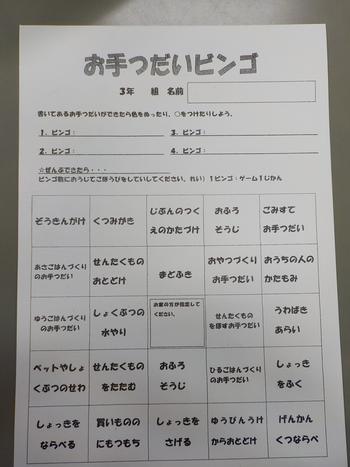 お手つだいビンゴ
3年　組　名前
書いてあるお手つだいができたら色をぬったり、○をつけたりしよう。
1．ビンゴ：
3．ビンゴ：
2．ビンゴ：
4．ビンゴ：
☆ぜんぶできたら・・・
ビンゴ数におうじてごほうびをしていしてください。れい）1ビンゴ：ゲーム1じかん
ぞうきんがけ
くつみがき
じぶんのつく
えのかたづけ
おふろ
そうじ
ごみすて
お手つだい
あさごはんづくり
のお手つだい
せんたくもの
おとどけ
まどふき
おやつづくり
お手つだい
おうちの人の
かたもみ
ゆうごはんづくり
のお手つだい
しょくぶつの
水やり
お家の方が指定して
ください。
せんたくもの
をほすお手つだい
うわばき
あらい
ペットやしょ
くぶつのせわ
せんたくもの
をたたむ
おふろ
そうじ
ひるごはんづくり
のお手つだい
しょっき
をふく
しょっきを
ならべる
買いものの
にもつもち
しょっきを
さげる
ゆうびんうけ
からおとどけ
げんかん
くつならべ